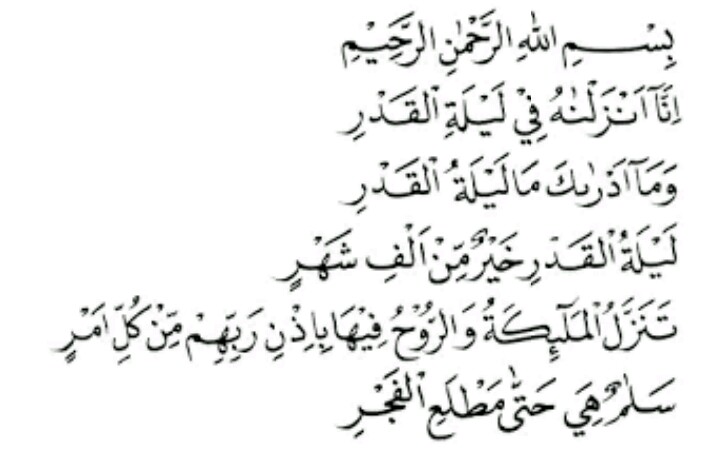 بِسْمِ اللهِ الرَّحْمٰنِ الرَّحِيْمِ
اِنَّآ اَنْزَلْنٰهُ فِيْ لَيْلَةِ الْقَدْرِ
وَمَآ اَدْرٰىكَ مَا لَيْلَةُ الْقَدْرِ
لَيْلَةُ الْقَدْرِ خَيْرٌ مِّنْ اَلْفِ شَهْرٍ
تَنَزَّلُ الْمَلٰٓئِكَةُ وَالرُّوْحُ فِيْهَا بِاِذْنِ رَبِّهِمْ مِّنْ كُلِّ اَمْرٍ
سَلٰمٌ هِيَ حَتّٰى مَطْلَعِ الْفَجْرِ